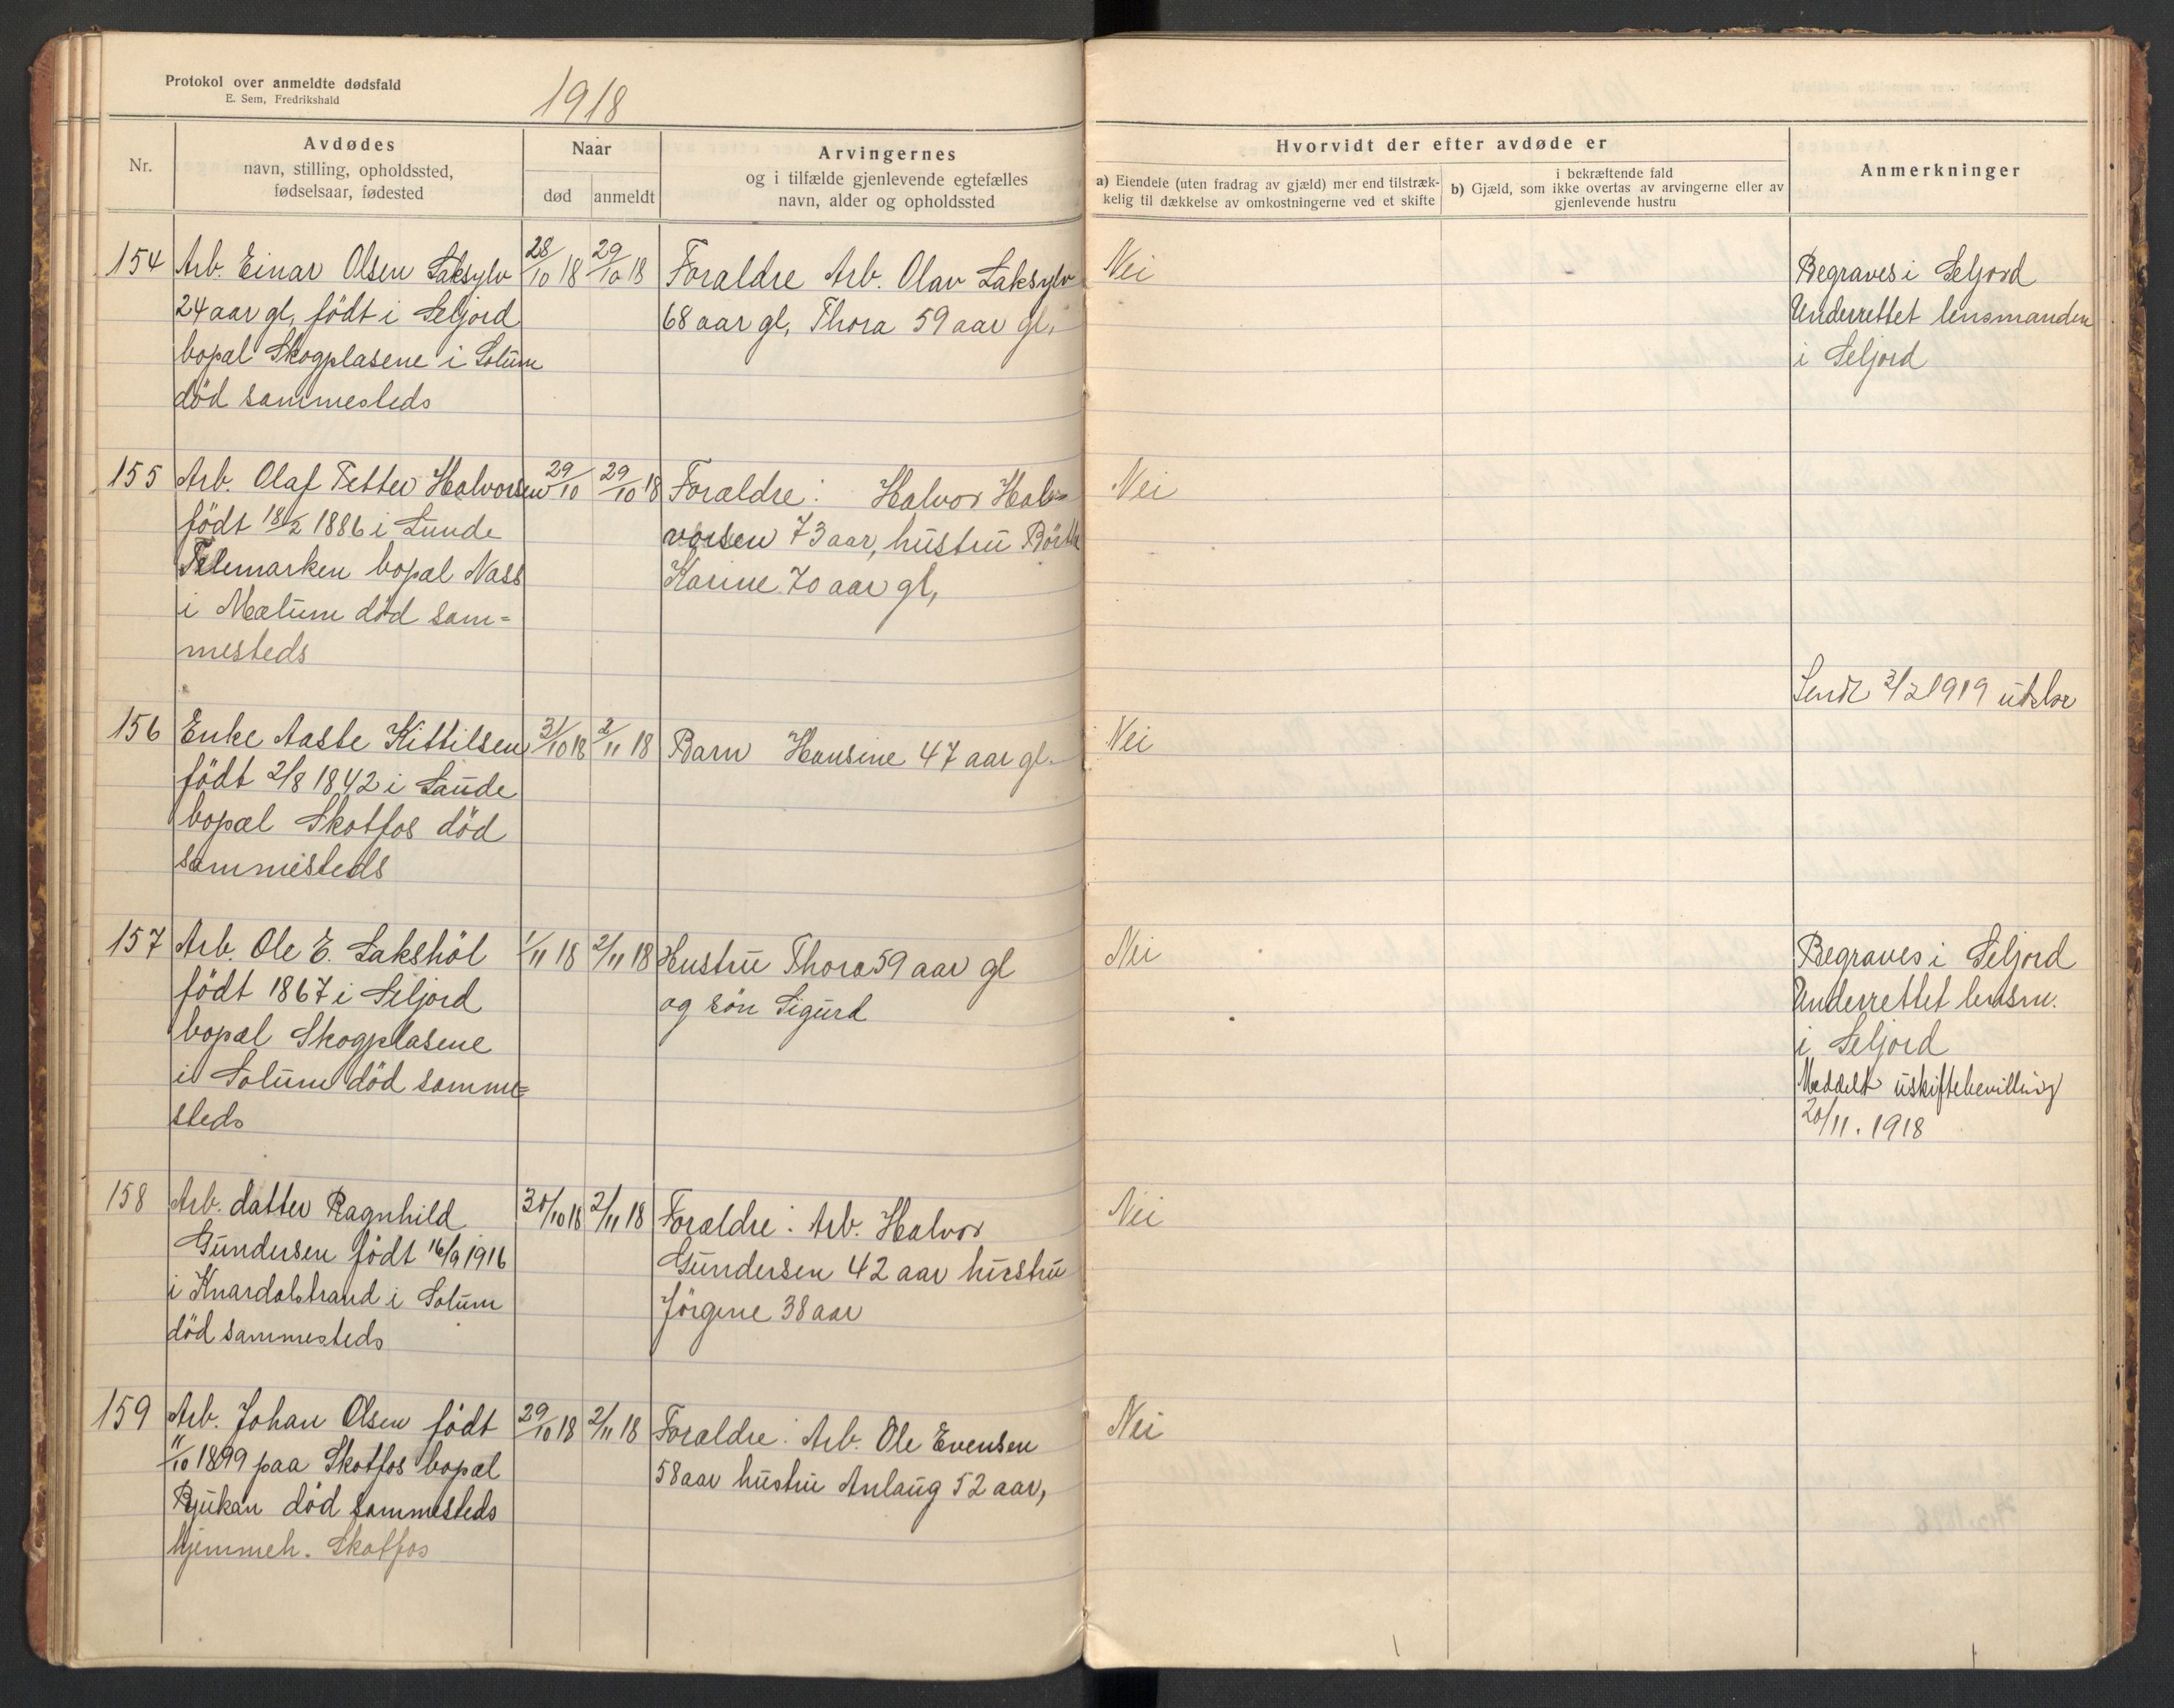 Protokol over anmeldte dødsfald
E. Sem, Fredrikshald
1918
Nr.
Avdødes
navn, stilling, opholdssted,
fødselsaar, fødested
Naar
død
anmeldt
Arvingernes
og i tilfælde gjenlevende egtefælles
navn, alder og opholdssted
Hvorvidt der efter avdøde er
a) Eiendele (uten fradrag av gjæld) mer end tilstræk-
kelig til dækkelse av omkostningerne ved et skifte
i bekræftende fald
b) Gjæld, som ikke overtas av arvingerne eller av
gjenlevende hustru
Anmerkninger
154 Arb. Einar Olsen Laksylv 28/10 18 29/10 18 Foraldre Arb. Olav Laksylv Nei Begraves i Seljord
24 aar gl, födt i Seljord 68 aar gl, Thora 59 aar gl, Underrettet lensmanden
bopal Skogplasene i Solum i Seljord
död sammesteds
155 Arb. Olaf Petter Halvorsen 29/10 29/10 18 Foraldre: Halvor Hal- Nei
födt 18/2 1886 i Lunde vorsen 73 aar, hustru
Telemarken bopal Nass Karine 70 aar gl,
i Mælum död sam-
mesteds
Sendt 3/2 1919
156 Enke Aaste Kittilsen 31/10 18 2/11 18 Barn Hansine 47 aar gl. Nei
födt 2/8 1842 i Saude
bopæl Skotfos död
sammesteds
157 Arb. Ole E. Lakshöl 1/11 18 2/11 18 Hustru Thora 59 aar gl Nei Begraves i Seljord
födt 1867 i Seljord og sön Sigurd Underrettet lensm.
bopæl Skogplasene i Seljord
i Solum död samme= Meddelt uskiftebevilling
steds 20/11. 1918
158 Arb. datter Ragnhild 30/10 18 2/11 18 Foraldre: Arb. Halvor Nei
Gundersen födt 16/9 1916 Gundersen 42 aar hustru
i Knardalstrand i Solum Jörgine 38 aar
död sammesteds
159 Arb. Johan Olsen födt 29/10 18 2/11 18 Foraldre: Arb. Ole Evensen Nei
11/10 1899 paa Skotfos bopæl 58 aar hustru Anlaug 52 aar,
Rjukan död sammesteds
hjemmeh. Skotfos